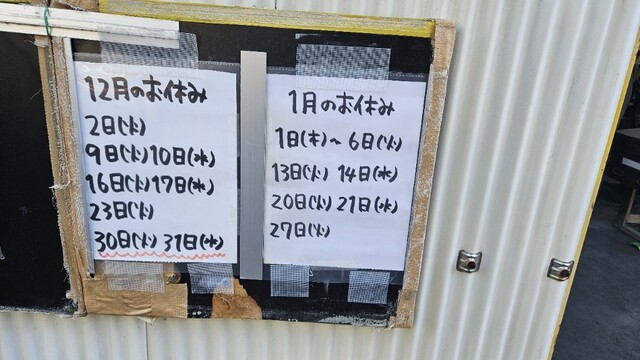 12月のお休み
2日(火)
9日(火)10日(水)
16日(火)17日(水)
23日(火)
30日(火) 31日(水)
1月のお休み
1日(木)〜6日(火)
13日(火) 14日(水)
20日(火) 21日(水)
27日(火)